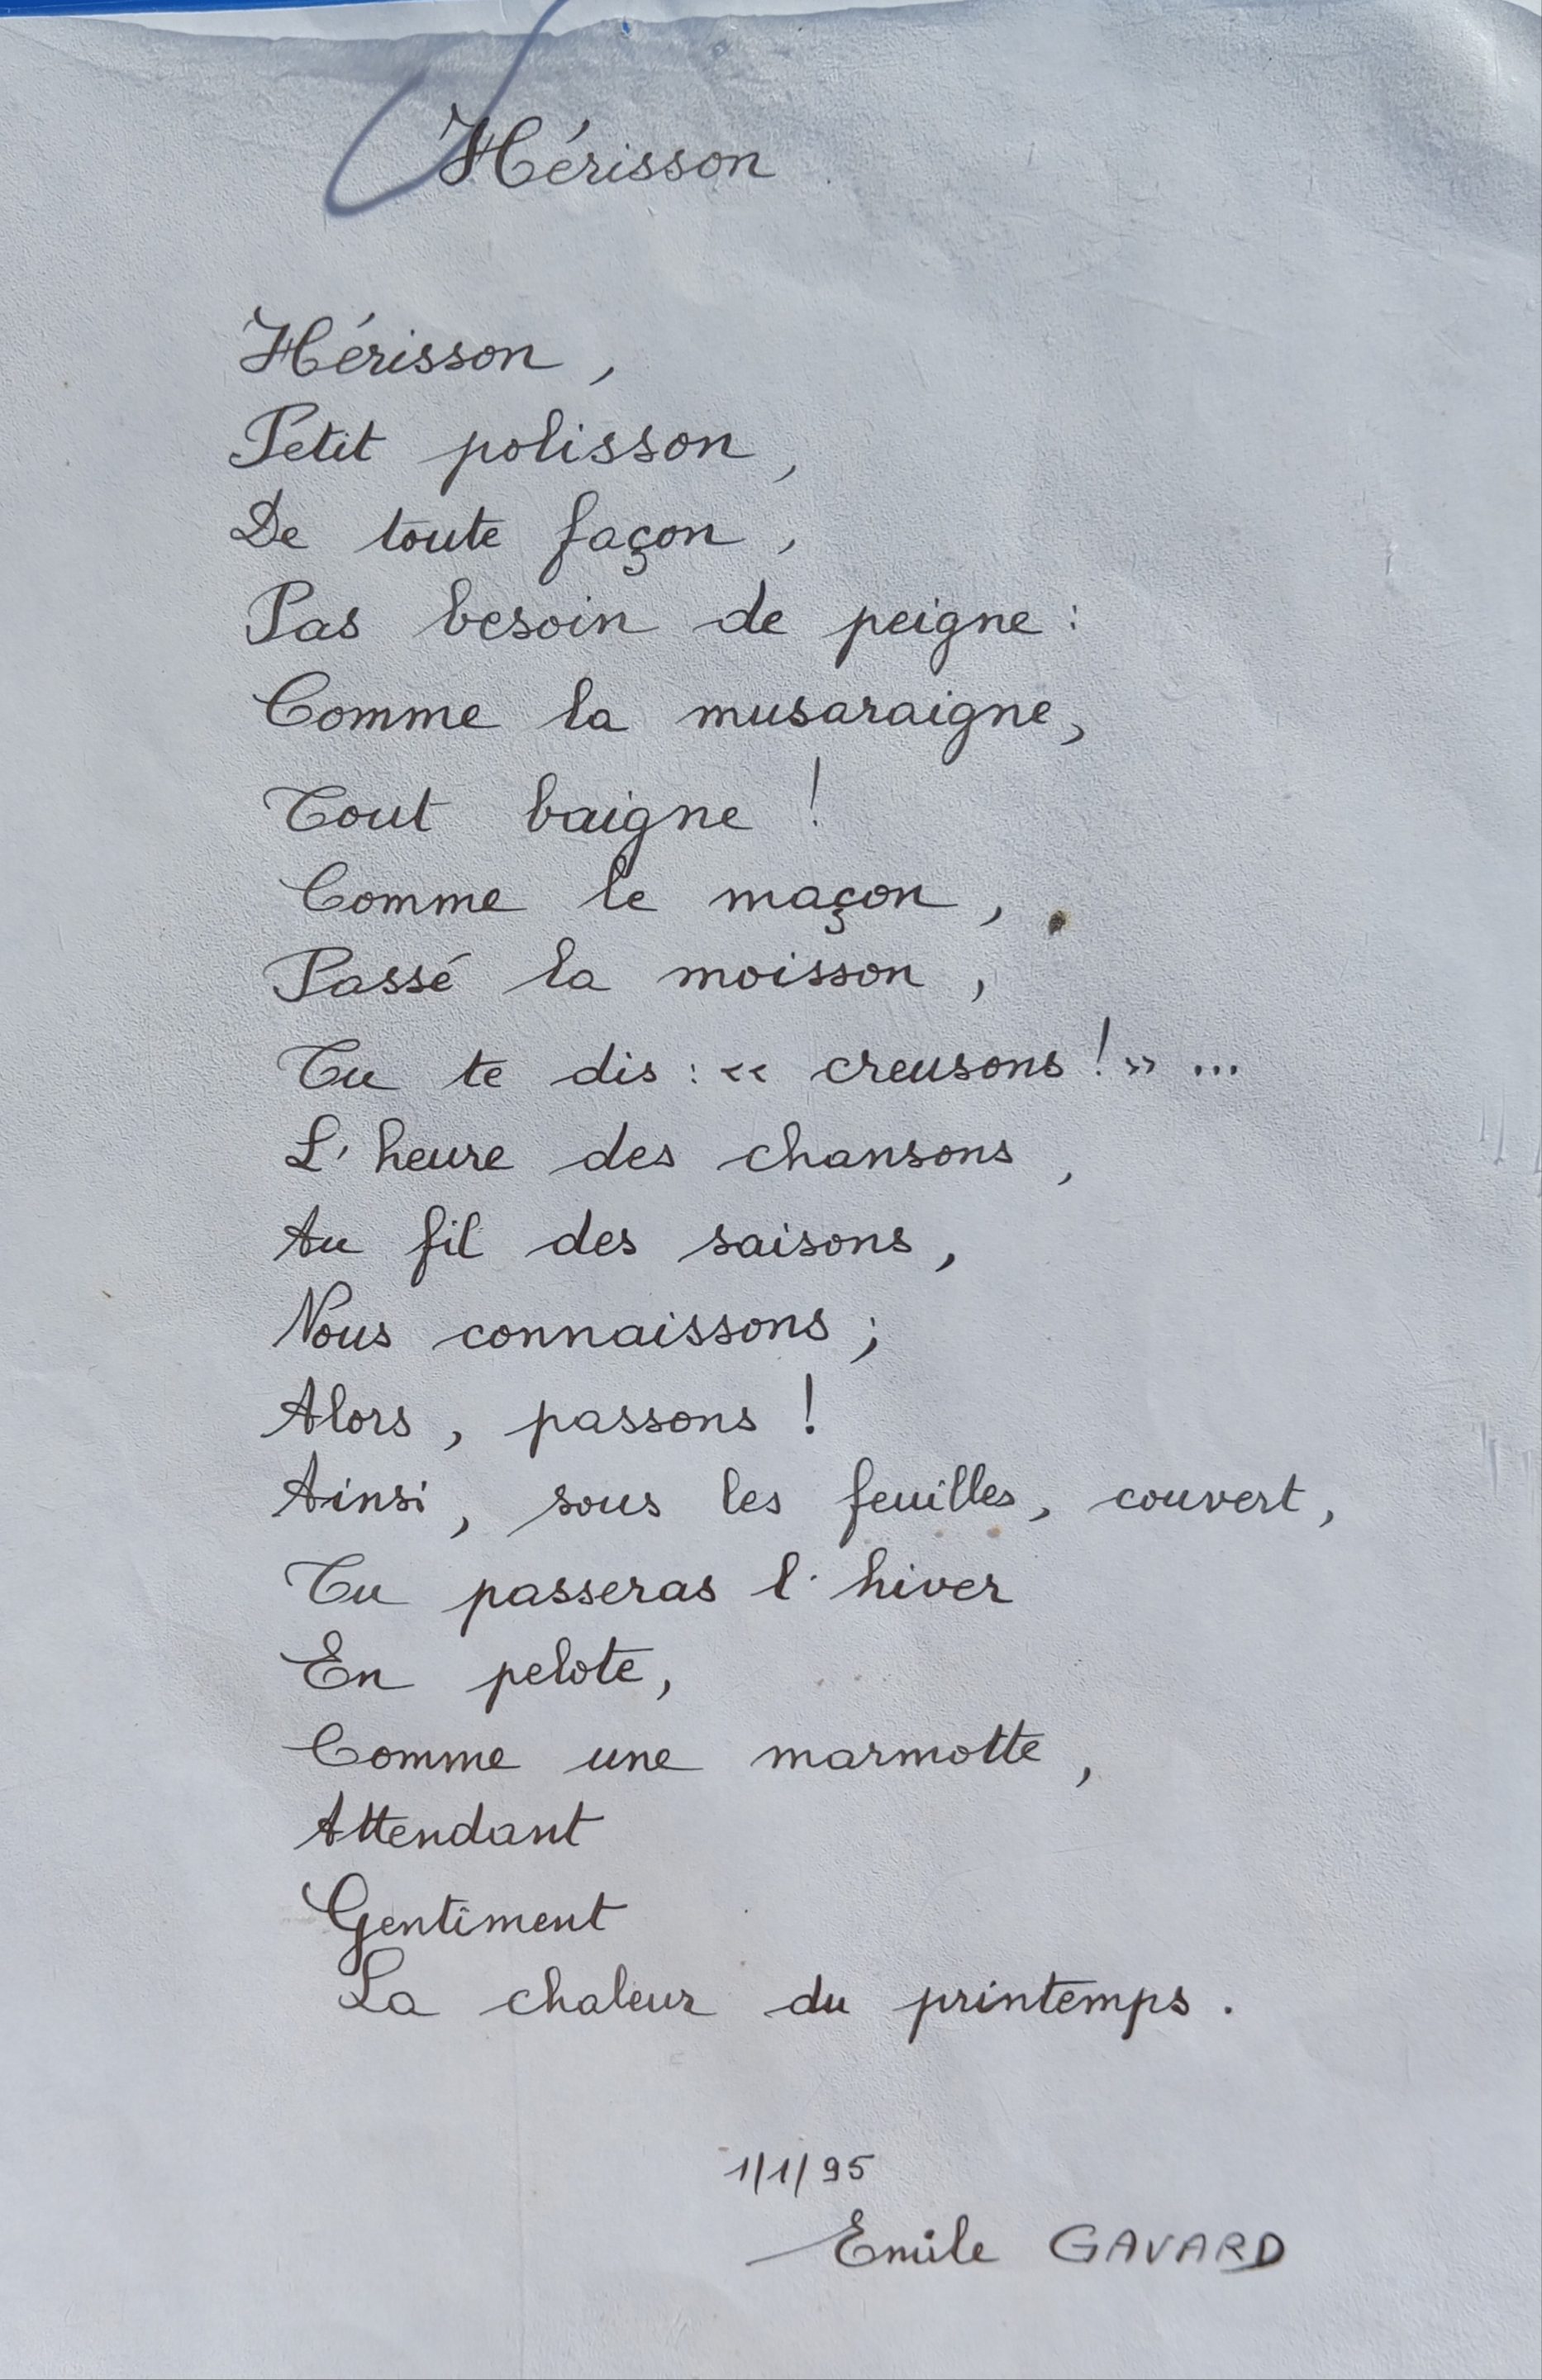 Hérisson
Hérisson,
Petit polisson,
De toute façon,
Pas besoin de peigne :
Comme la musaraigne,
Tout baigne !
Comme le maçon,
Passé la moisson,
Tu te dis : « creusons ! » ...
L'heure des chansons,
Au fil des saisons,
Nous connaissons ;
Alors, passons !
Ainsi, sous les feuilles, couvert,
Tu passeras l'hiver
En pelote,
Comme une marmotte,
Attendant
Gentiment
La chaleur du printemps.
1/1/95
Emile GAVARD